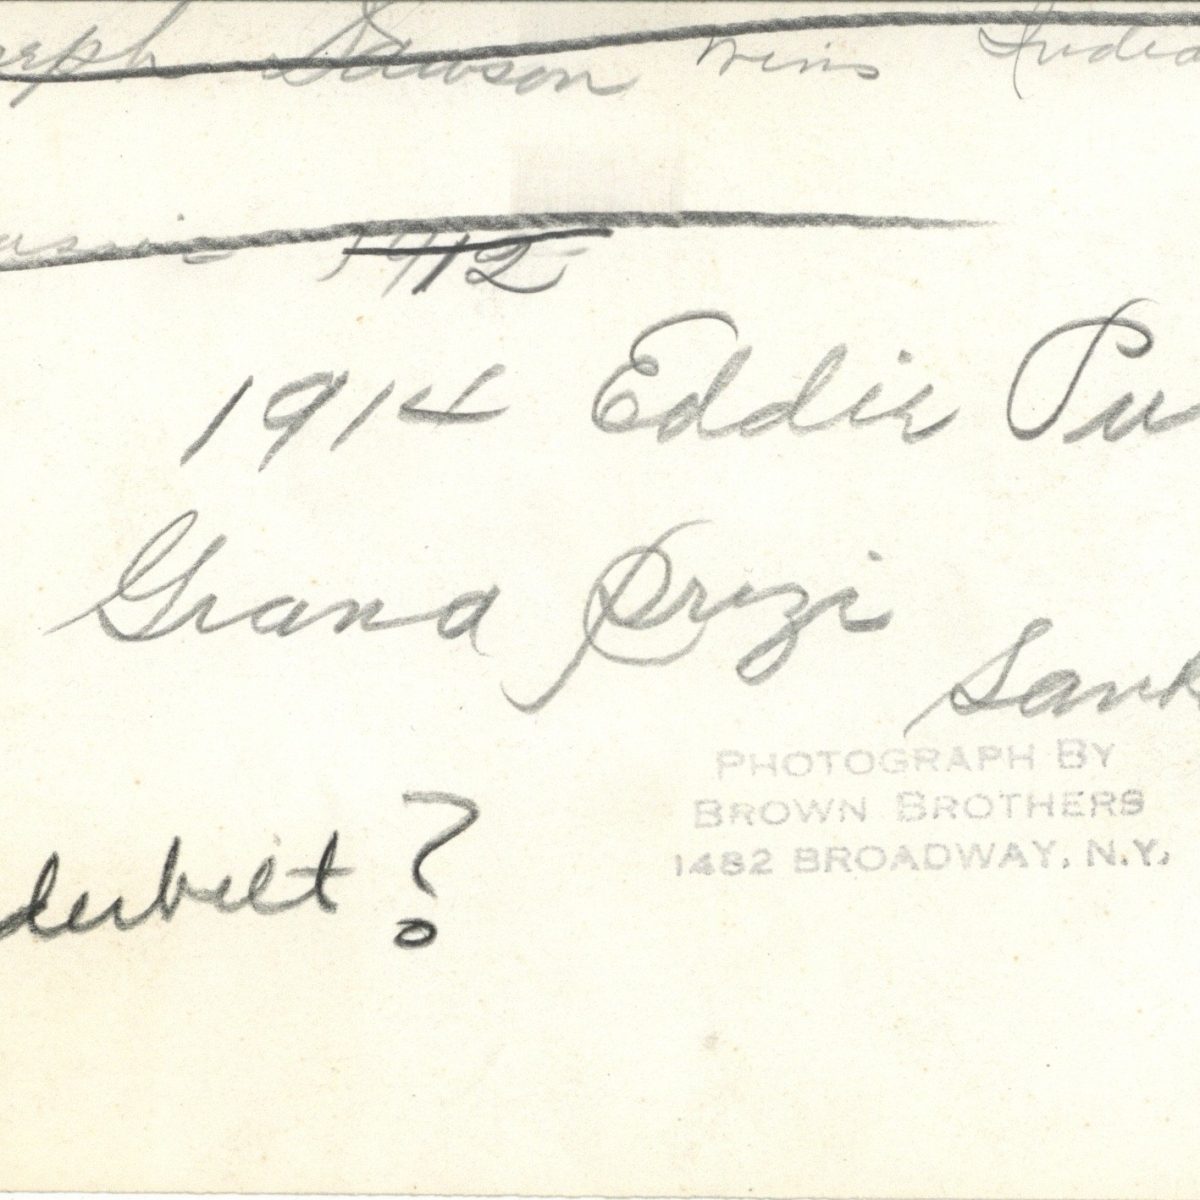 oseph Dawson wins India
1912
1914 Eddie Pu
Grand Prize
San
PHOTOGRAPH BY
BROWN BROTHERS
1482 BROADWAY, N.Y.
derbilt?